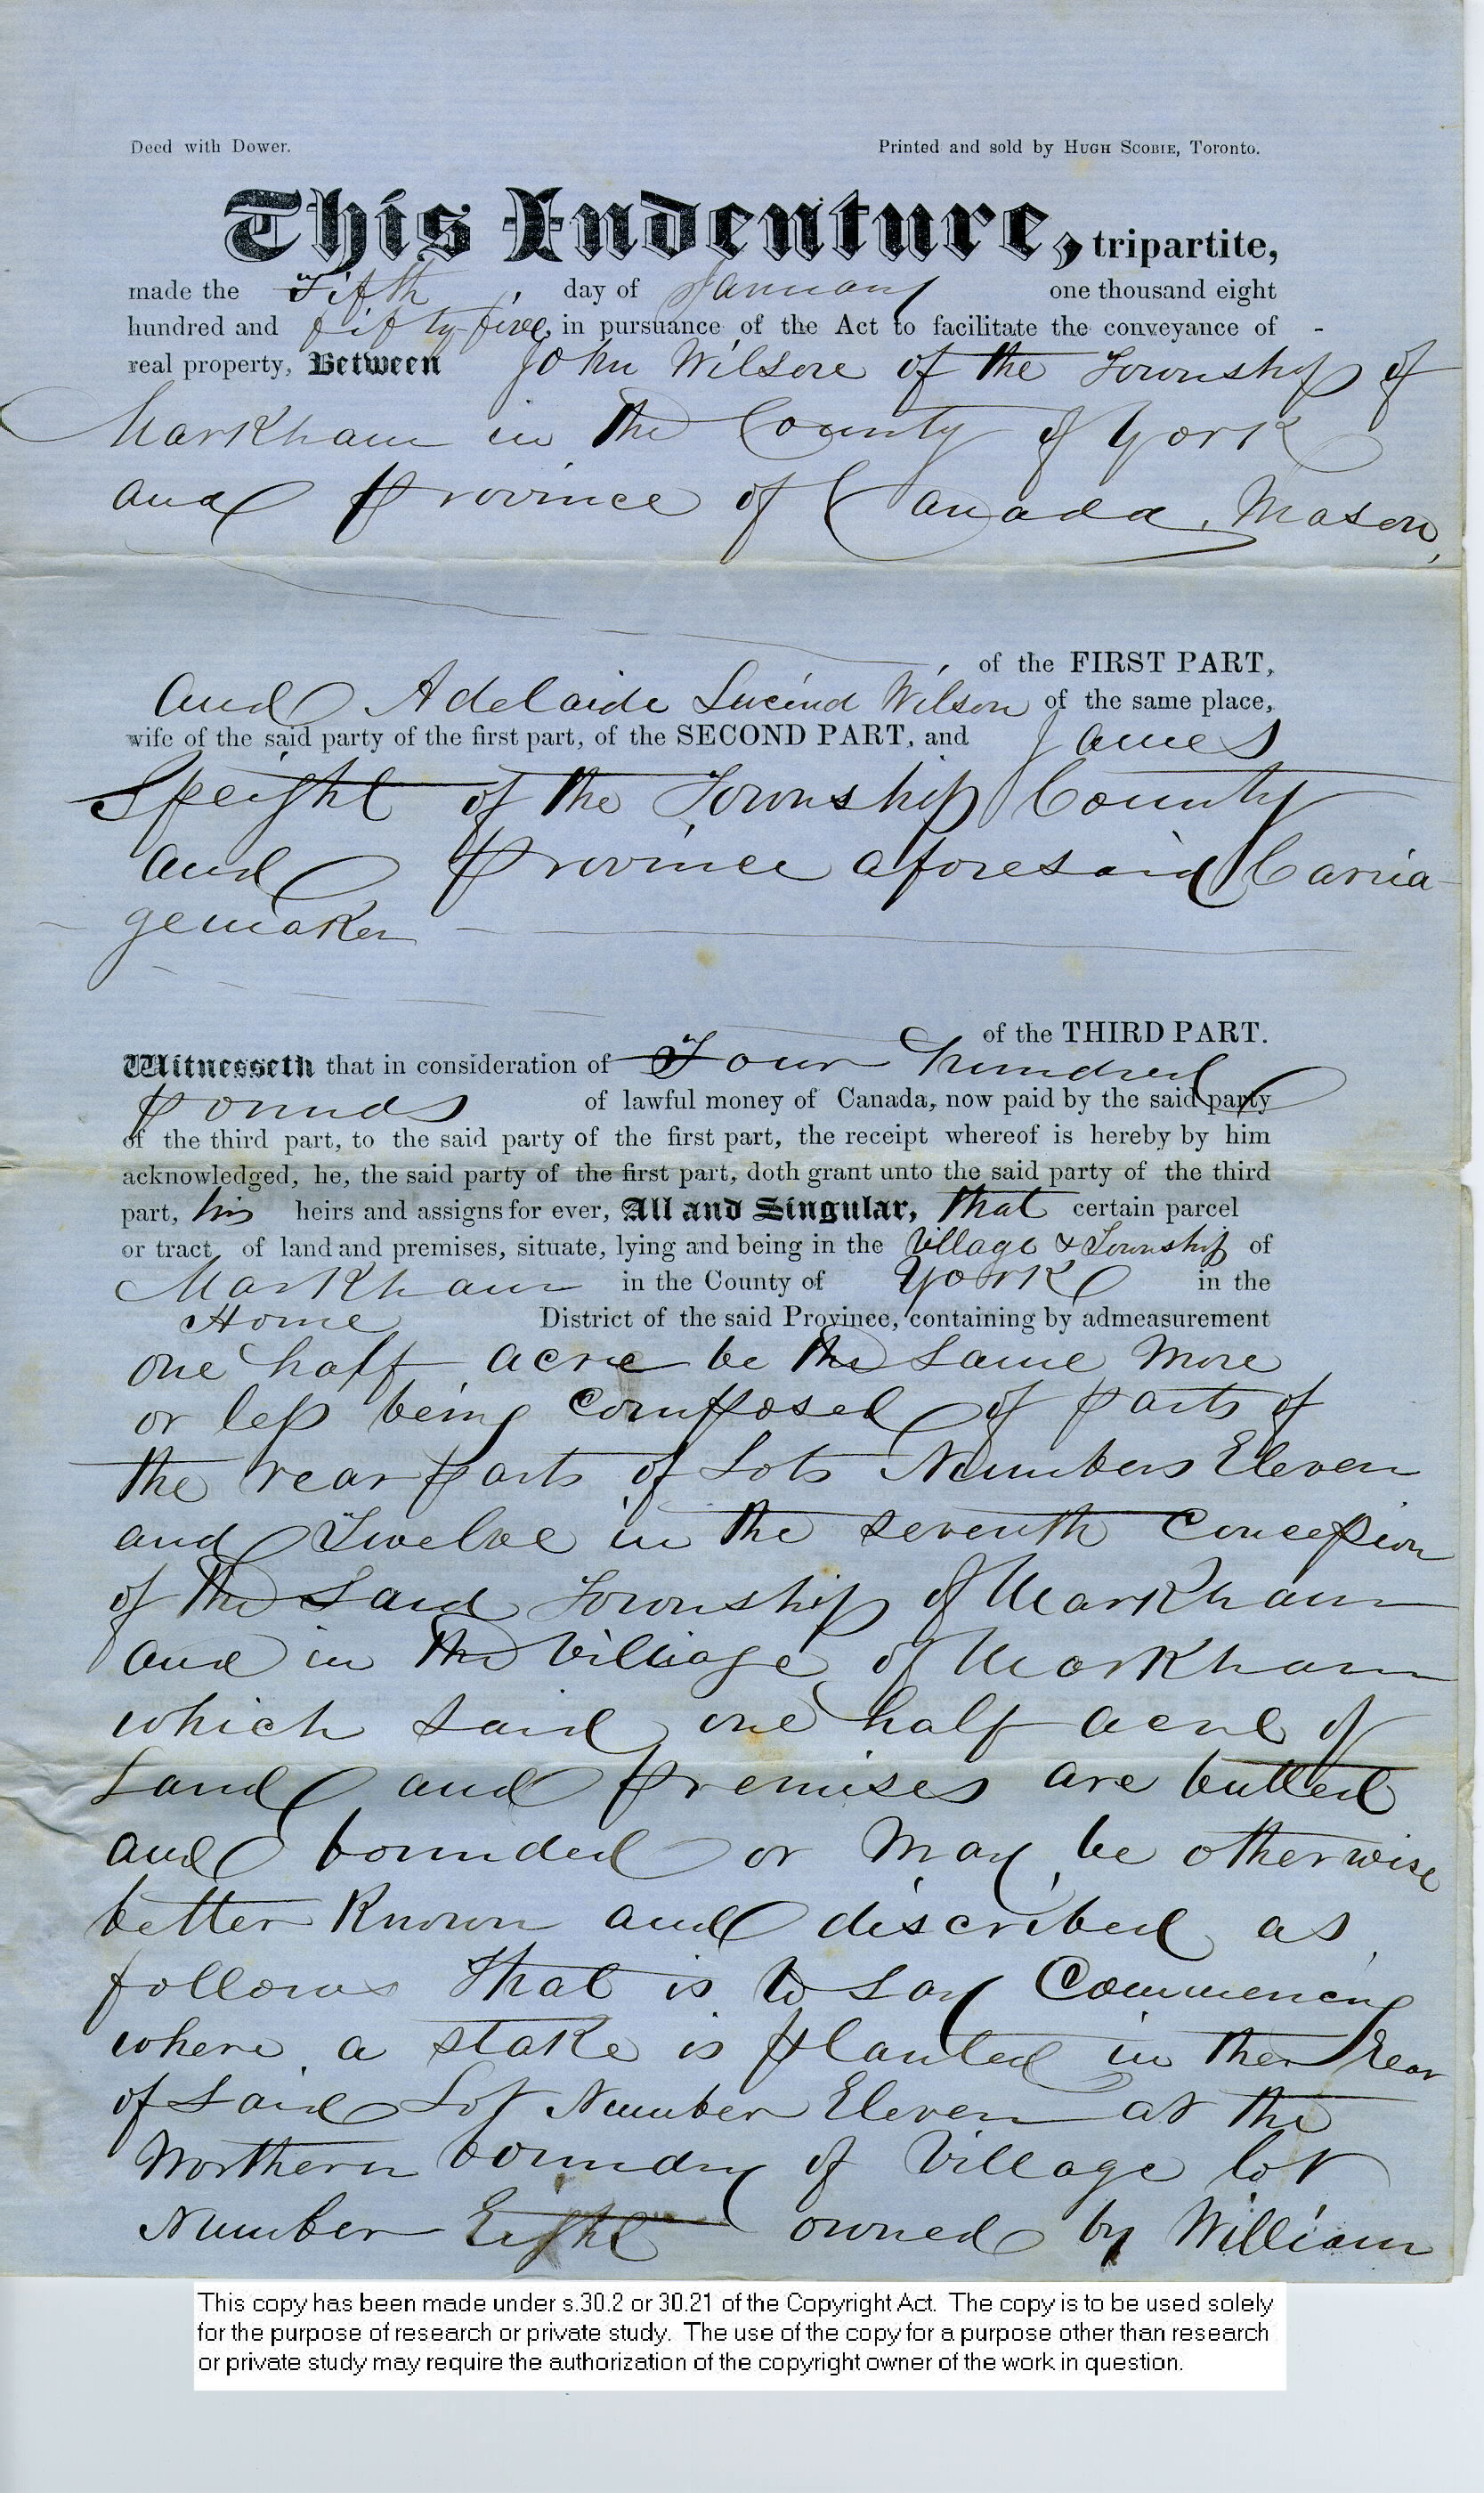 Deed with Dower. Printed and sold by HUGH SCOBIE, Toronto.
This Indenture, tripartite,
made the Fifth day of January one thousand eight
hundred and fifty five, in pursuance of the Act to facilitate the conveyance of -
real property, Between John Wilson of the Township of
Markham in the County of York
and Province of Canada, Mason,
of the FIRST PART,
and Adelaide Lucind Wilson of the same place,
wife of the said party of the first part, of the SECOND PART, and James
Speight of the Township County
and Province aforesaid Carria-
gemaker
of the THIRD PART.
Witnesseth that in consideration of Four hundred
pounds of lawful money of Canada, now paid by the said party
of the third part, to the said party of the first part, the receipt whereof is hereby by him
acknowledged, he, the said party of the first part, doth grant unto the said party of the third
part, his heirs and assigns for ever, All and Singular, that certain parcel
or tract of land and premises, situate, lying and being in the Village & Township of
Markham in the County of York in the
Home District of the said Province, containing by admeasurement
one half acre be the same more
or less being composed of parts of
the rear parts of Lots Numbers Eleven
and Twelve in the seventh Concession
of the Said Township of Markham
and in the Villiage of Markham
which said one half acre of
Land and premises are butted
and bounded or may be otherwise
better Known and discribed as
follows that is to say Commencing
where a stake is planted in the Rear
of said Lot Number Eleven at the
Northern boundry of Village lot
Number Eight owned by William
This copy has been made under s.30.2 or 30.21 of the Copyright Act. The copy is to be used solely
for the purpose of research or private study. The use of the copy for a purpose other than research
or private study may require the authorization of the copyright owner of the work in question.